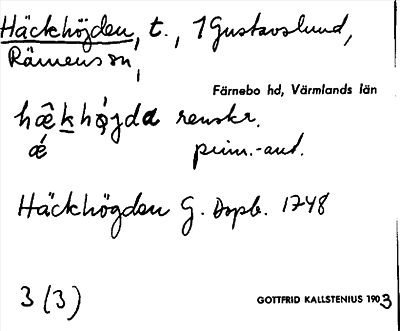 Häckhöjden, t., 1 Gustavslund,
Rämens sn,
Färnebo hd, Värmlands län
hæ̂khǫ́jda renskr.
ǽ prim.-ant.
Häckhögden G. Dopb. 1748
3 (3)
GOTTFRID KALLSTENIUS 1903